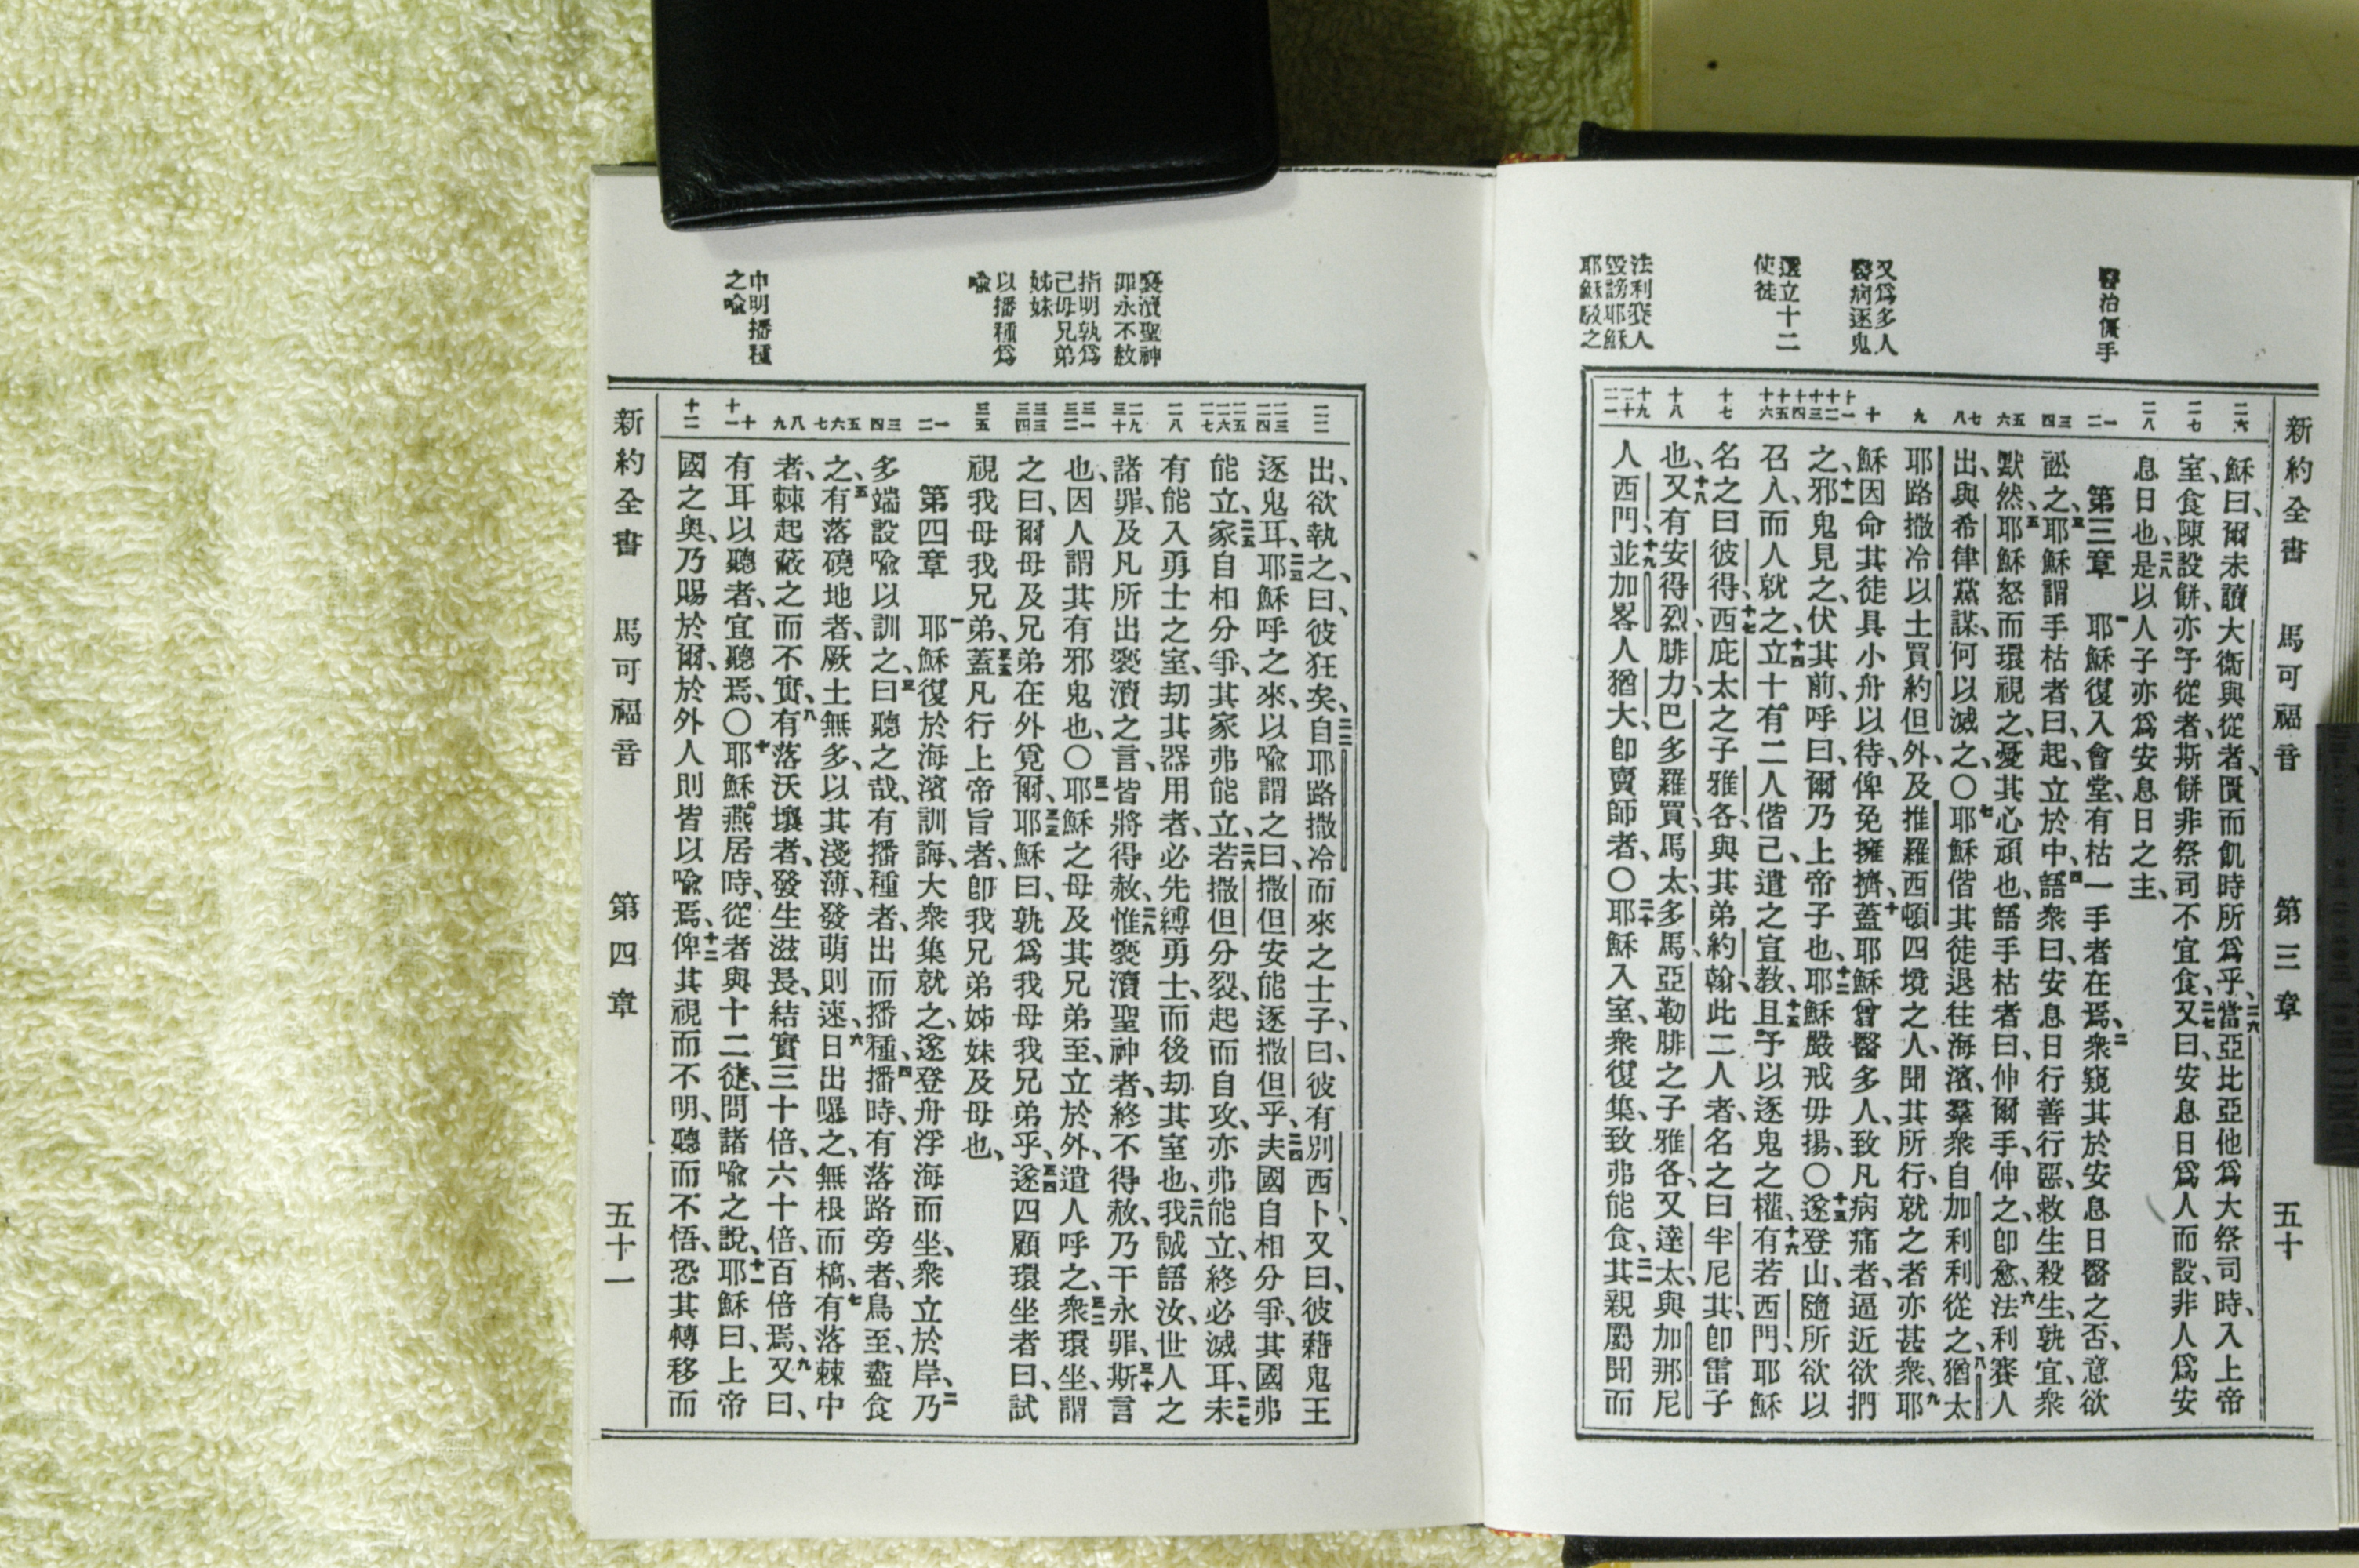 新約全書 馬可福音 第三章 五十
醫治僵手
又爲多人
醫病逐鬼
選立十二
使徒
法利賽人
毀謗耶穌
耶穌駁之
二六 二七 二八 一 二 三 四 五 六 七 八 九 十 十一 十二 十三 十四 十五 十六 十七 十八 十九 二十 二一
穌曰、爾未讀大衛與從者、匱而飢時所爲乎、二六當亞比亞他爲大祭司時、入上帝
室、食陳設餅、亦予從者、斯餅非祭司不宜食、二七又曰、安息日爲人而設、非人爲安
息日也、二八是以人子亦爲安息日之主、
第三章 一耶穌復入會堂、有枯一手者在焉、二衆窺其於安息日醫之否、意欲
訟之、三耶穌謂手枯者曰、起、立於中、四語衆曰、安息日行善行惡、救生殺生、孰宜、衆
默然、五耶穌怒而環視之、憂其心頑也、語手枯者曰、伸爾手、伸之、卽愈、六法利賽人
出、與希律黨謀、何以滅之、〇七耶穌偕其徒退往海濱、羣衆自加利利從之、八猶太
耶路撒冷以土買約但外、及推羅西頓四境之人、聞其所行、就之者亦甚衆、九耶
穌因命其徒具小舟以待、俾免擁擠、十蓋耶穌曾醫多人、致凡病痛者、逼近欲捫
之、十一邪鬼見之、伏其前、呼曰、爾乃上帝子也、十二耶穌嚴戒毋揚、〇十三遂登山、隨所欲以
召人、而人就之、十四立十有二人偕己、遣之宣教、十五且予以逐鬼之權、十六有若西門、耶穌
名之曰彼得、十七西庇太之子雅各、與其弟約翰、此二人者、名之曰半尼其、卽雷子
也、十八又有安得烈、腓力、巴多羅買、馬太、多馬、亞勒腓之子雅各、又達太、與加那尼
人西門、十九並加畧人猶大、卽賣師者、〇二十耶穌入室、衆復集、致弗能食、二一其親屬聞而
褻瀆聖神
罪永不赦
指明孰爲
己母兄弟
姊妹
以播種爲
喻
申明播種
之喻
二二 二三 二四 二五 二六 二七 二八 二九 三十 三一 三二 三三 三四 三五 一 二 三 四 五 六 七 八 九 十 十一 十二
出、欲執之、曰、彼狂矣、二二自耶路撒冷而來之士子、曰、彼有別西卜、又曰、彼藉鬼王
逐鬼耳、二三耶穌呼之來、以喻謂之曰、撒但安能逐撒但乎、二四夫國自相分爭、其國弗
能立、二五家自相分爭、其家弗能立、二六若撒但分裂、起而自攻、亦弗能立、終必滅耳、二七未
有能入勇士之室、刧其器用者、必先縛勇士、而後刧其室也、二八我誠語汝、世人之
諸罪、及凡所出褻瀆之言、皆將得赦、二九惟褻瀆聖神者、終不得赦、乃干永罪、三十斯言
也、因人謂其有邪鬼也、〇三一耶穌之母及其兄弟至、立於外、遣人呼之、三二衆環坐、謂
之曰、爾母及兄弟在外覓爾、三三耶穌曰、孰爲我母我兄弟乎、三四遂四顧環坐者曰、試
視我母我兄弟、三五蓋凡行上帝旨者、卽我兄弟姊妹及母也、
第四章 一耶穌復於海濱訓誨、大衆集就之、遂登舟浮海而坐、衆立於岸、二乃
多端設喻以訓之、曰三聽之哉、有播種者、出而播種、四播時、有落路旁者、鳥至、盡食
之、五有落磽地者、厥土無多、以其淺薄、發萌則速、六日出曝之、無根而槁、七有落棘中
者、棘起蔽之而不實、八有落沃壤者、發生滋長、結實三十倍、六十倍、百倍焉、九又曰、
有耳以聽者、宜聽焉、〇十耶穌燕居時、從者與十二徒、問諸喻之說、十一耶穌曰、上帝
國之奥、乃賜於爾、於外人則皆以喻焉、十二俾其視而不明、聽而不悟、恐其轉移而
新約全書 馬可福音 第四章 五十一